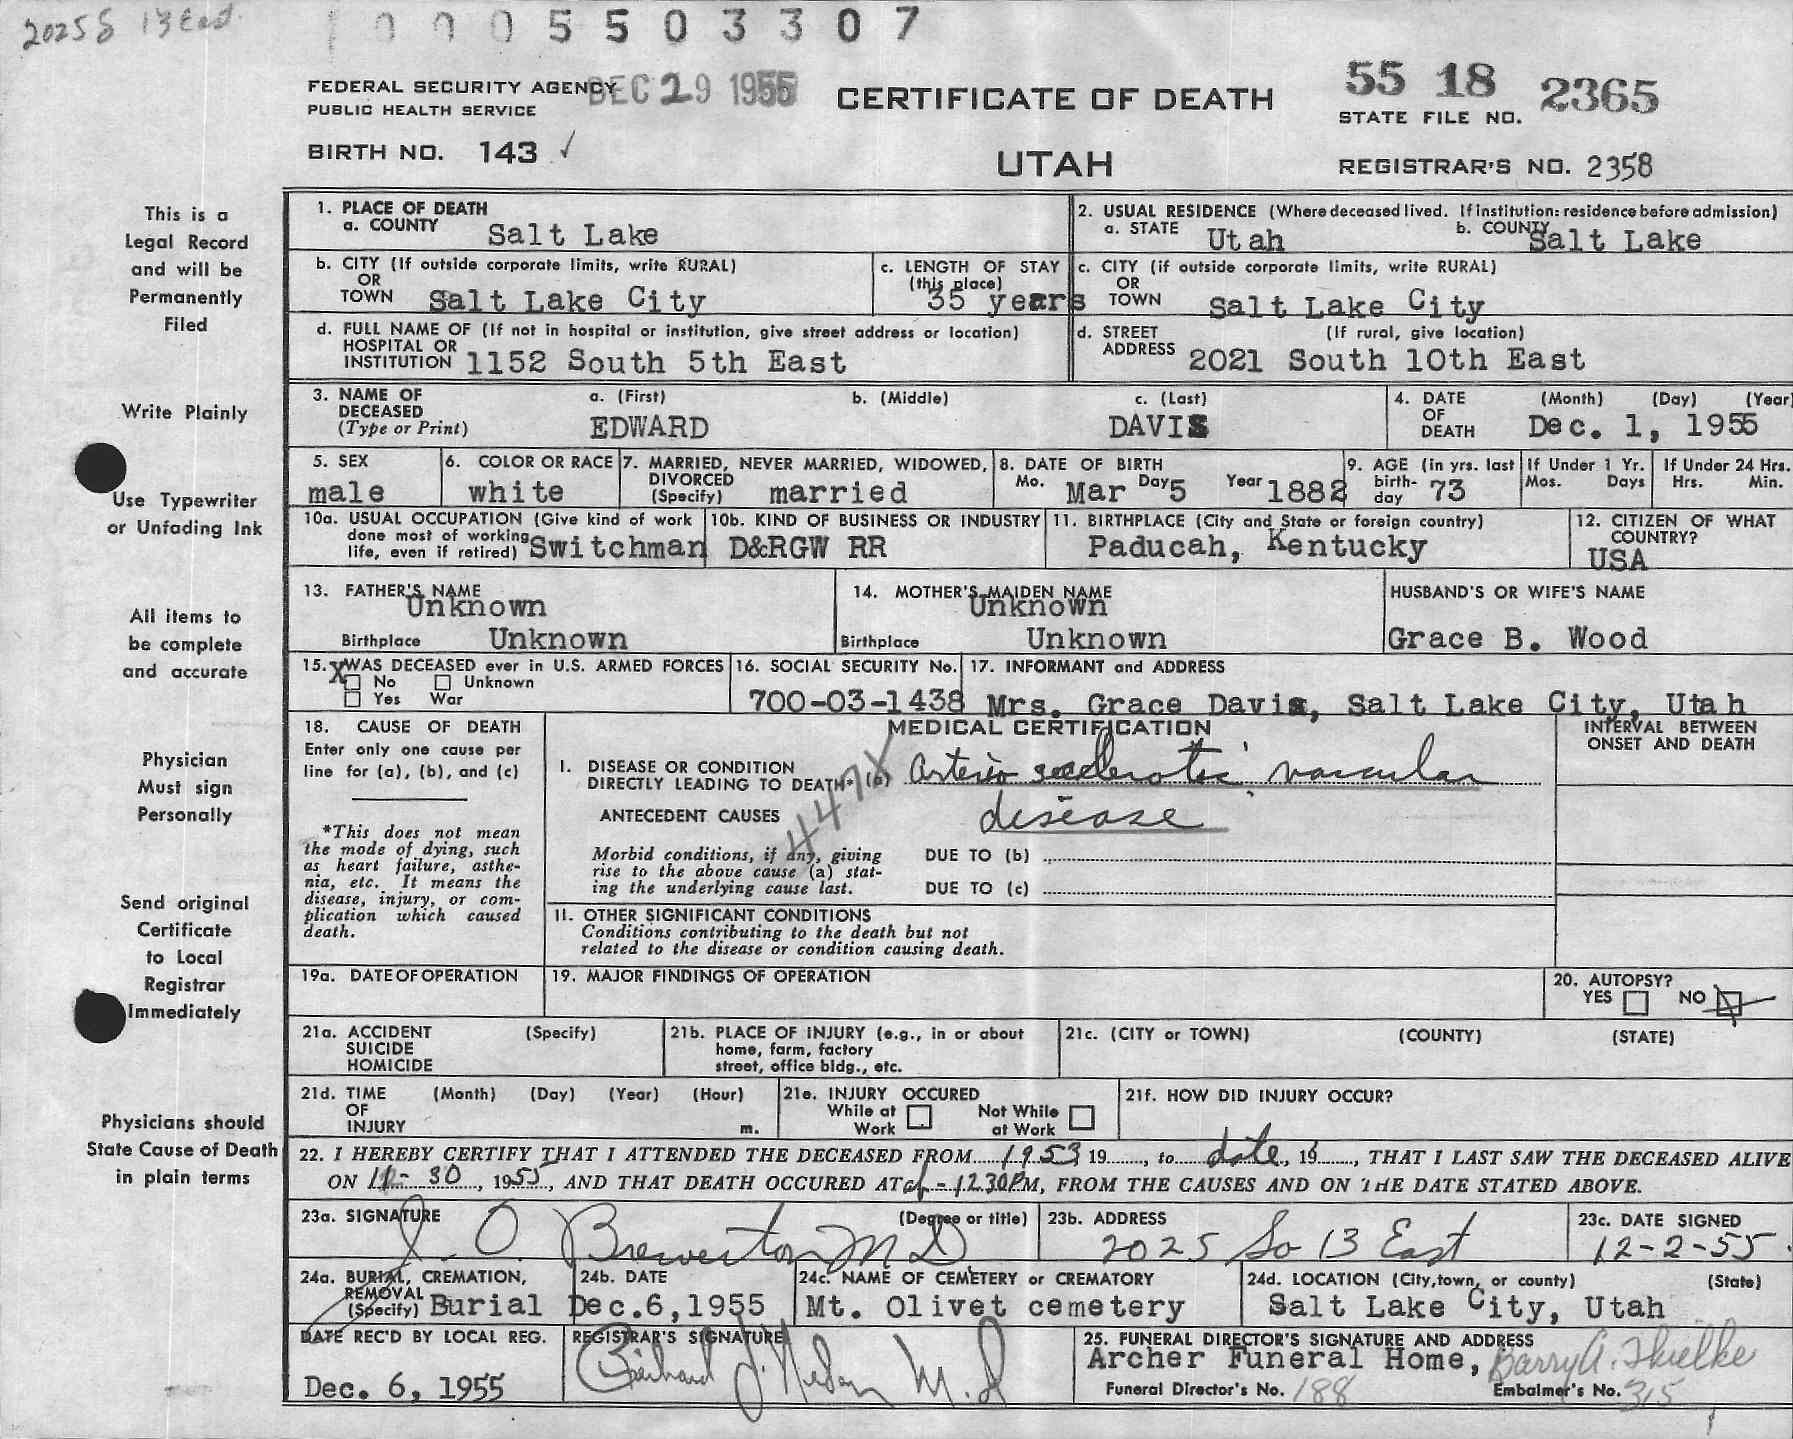 2025 S 13 East
1 0 0 0 5 5 0 3 3 0 7
FEDERAL SECURITY AGENCY
PUBLIC HEALTH SERVICE
DEC 29 1955
CERTIFICATE OF DEATH
UTAH
55 18 2365
STATE FILE NO.
BIRTH NO. 143 ✓
REGISTRAR'S NO. 2358
This is a
Legal Record
and will be
Permanently
Filed
Write Plainly
Use Typewriter
or Unfading Ink
All items to
be complete
and accurate
Physician
Must sign
Personally
Send original
Certificate
to Local
Registrar
Immediately
Physicians should
State Cause of Death
in plain terms
1. PLACE OF DEATH
a. COUNTY Salt Lake
2. USUAL RESIDENCE (Where deceased lived. If institution: residence before admission)
a. STATE Utah b. COUNTY Salt Lake
b. CITY (If outside corporate limits, write RURAL)
OR
TOWN Salt Lake City
c. LENGTH OF STAY
(this place)
35 years
c. CITY (if outside corporate limits, write RURAL)
OR
TOWN Salt Lake City
d. FULL NAME OF (If not in hospital or institution, give street address or location)
HOSPITAL OR
INSTITUTION 1152 South 5th East
d. STREET (If rural, give location)
ADDRESS 2021 South 10th East
3. NAME OF a. (First) b. (Middle) c. (Last)
DECEASED
(Type or Print) EDWARD DAVIS
4. DATE (Month) (Day) (Year)
OF
DEATH Dec. 1, 1955
5. SEX
male
6. COLOR OR RACE
white
7. MARRIED, NEVER MARRIED, WIDOWED,
DIVORCED
(Specify) married
8. DATE OF BIRTH
Mo. Mar Day 5 Year 1882
9. AGE (in yrs. last
birth-
day 73
If Under 1 Yr.
Mos. Days
If Under 24 Hrs.
Hrs. Min.
10a. USUAL OCCUPATION (Give kind of work
done most of working
life, even if retired) Switchman
10b. KIND OF BUSINESS OR INDUSTRY
D&RGW RR
11. BIRTHPLACE (City and State or foreign country)
Paducah, Kentucky
12. CITIZEN OF WHAT
COUNTRY?
USA
13. FATHER'S NAME
Unknown
Birthplace Unknown
14. MOTHER'S MAIDEN NAME
Unknown
Birthplace Unknown
HUSBAND'S OR WIFE'S NAME
Grace B. Wood
15. WAS DECEASED ever in U.S. ARMED FORCES
X No Unknown
Yes War
16. SOCIAL SECURITY No.
700-03-1438
17. INFORMANT and ADDRESS
Mrs. Grace Davis, Salt Lake City, Utah
18. CAUSE OF DEATH
Enter only one cause per
line for (a), (b), and (c)
*This does not mean
the mode of dying, such
as heart failure, asthe-
nia, etc. It means the
disease, injury, or com-
plication which caused
death.
MEDICAL CERTIFICATION
INTERVAL BETWEEN
ONSET AND DEATH
I. DISEASE OR CONDITION
DIRECTLY LEADING TO DEATH* (a) Arterio sclerotic vascular
disease
447X
ANTECEDENT CAUSES
Morbid conditions, if any, giving
rise to the above cause (a) stat-
ing the underlying cause last.
DUE TO (b)
DUE TO (c)
II. OTHER SIGNIFICANT CONDITIONS
Conditions contributing to the death but not
related to the disease or condition causing death.
19a. DATE OF OPERATION
19. MAJOR FINDINGS OF OPERATION
20. AUTOPSY?
YES NO X
21a. ACCIDENT (Specify)
SUICIDE
HOMICIDE
21b. PLACE OF INJURY (e.g., in or about
home, farm, factory
street, office bldg., etc.
21c. (CITY or TOWN) (COUNTY) (STATE)
21d. TIME (Month) (Day) (Year) (Hour)
OF
INJURY m.
21e. INJURY OCCURED
While at Work Not While at Work
21f. HOW DID INJURY OCCUR?
22. I HEREBY CERTIFY THAT I ATTENDED THE DECEASED FROM 1953, 19......, to date, 19......, THAT I LAST SAW THE DECEASED ALIVE
ON 11-30, 1955, AND THAT DEATH OCCURED AT 12.30 P.M, FROM THE CAUSES AND ON THE DATE STATED ABOVE.
23a. SIGNATURE (Degree or title)
J. O. Brewerton MD
23b. ADDRESS
2025 So 13 East
23c. DATE SIGNED
12-2-55.
24a. BURIAL, CREMATION,
REMOVAL
(Specify) Burial
24b. DATE
Dec.6,1955
24c. NAME OF CEMETERY or CREMATORY
Mt. Olivet cemetery
24d. LOCATION (City, town, or county) (State)
Salt Lake City, Utah
DATE REC'D BY LOCAL REG.
Dec. 6, 1955
REGISTRAR'S SIGNATURE
M.D
25. FUNERAL DIRECTOR'S SIGNATURE AND ADDRESS
Archer Funeral Home, Barry A. Thielke
Funeral Director's No. 188 Embalmer's No. 315